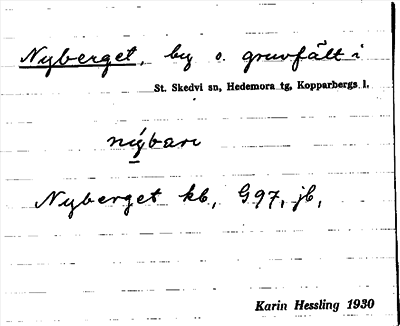 Nyberget, by o. gruvfält i
St. Skedvi sn, Hedemora tg, Kopparbergs l.
nýbari
Nyberget kb, G97, jb,
Karin Hessling 1930